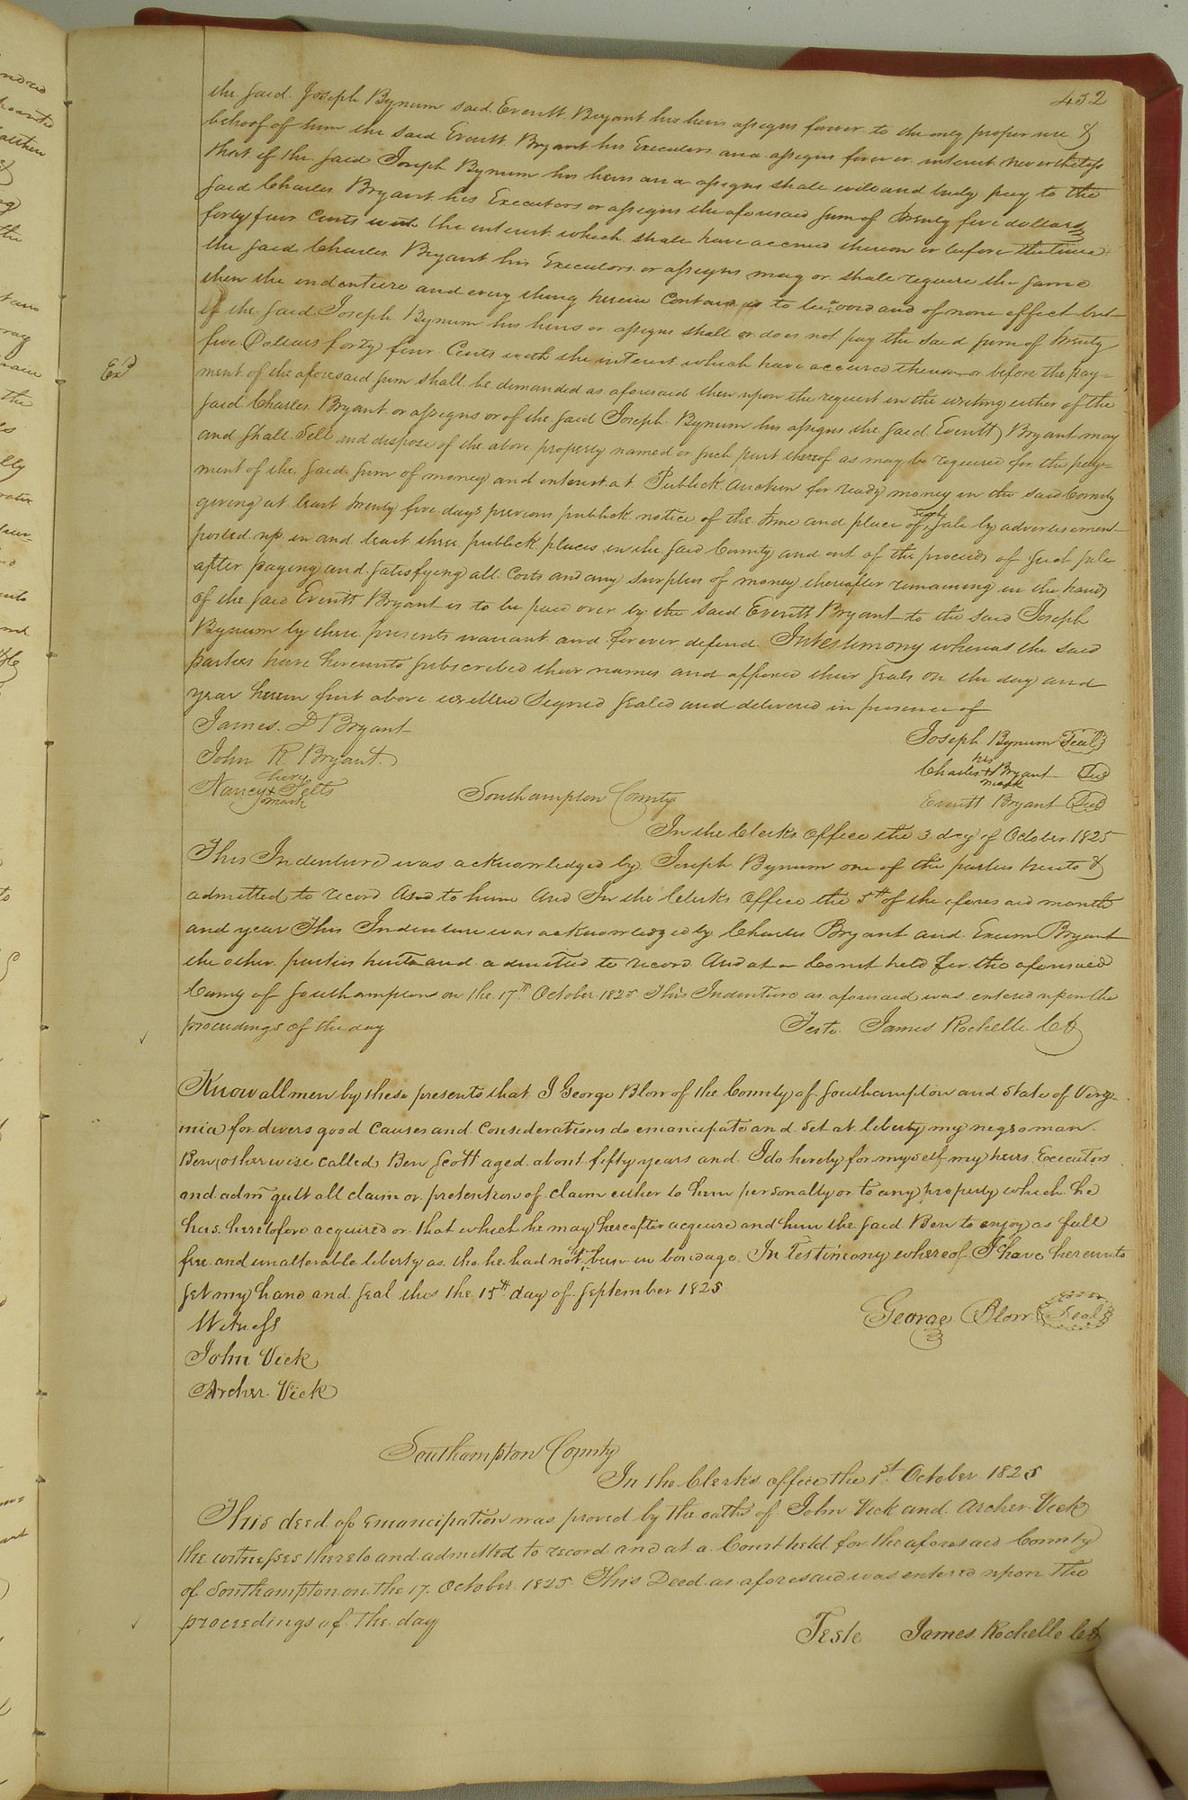 452
the said Joseph Bynum said Everitt Bryant his heirs assigns forever to the only proper use &
behoof of him the said Everitt Bryant his Executors and assigns forever interest nevertheless
that if the said Joseph Bynum his heirs and assigns shall well and truly pay to the
said Charles Bryant his Executors or assigns the aforesaid sum of twenty five dollars
forty four Cents with the interest which shall have accrued thereon or before the time
the said Charles Bryant his Executors or assigns may or shall require the same
then the indenture and every thing herein Contain is to be void and of none effect but
if the said Joseph Bynum his heirs or assigns shall or does not pay the said sum of twenty
five Dollars forty four Cents with the interest which have accrued thereon or before the pay=
Ex'd
ment of the aforesaid sum shall be demanded as aforesaid then upon the request in the writing either of the
said Charles Bryant or assigns or of the said Joseph Bynum his assigns the said Everitt Bryant may
and shall sell and dispose of the above property named or such part thereof as may be required for the pay=
ment of the said sum of money and interest at Publick auction for ready money in the said County
giving at least twenty five days previous publick notice of the time and place of such sale by advertisement
posted up in and least three publick places in the said County and out of the proceeds of such sale
after paying and satisfying all Costs and any surplus of money thereafter remaining in the hands
of the said Everitt Bryant is to be paid over by the said Everitt Bryant to the said Joseph
Bynum by these presents warrant and forever defend In testimony whereas the said
parties have hereunto subscribed their names and affixed their seals on the day and
year herein first above written Signed sealed and delivered in presence of
James. D Bryant
Joseph Bynum Seal
John R Bryant.
his
Charles + Bryant Seal
mark
Nancy + Felts
mark
Southampton County
Everitt Bryant Seal
In the Clerks office the 3 day of October 1825
This Indenture was acknowledged by Joseph Bynum one of the parties hereto &
admitted to record as to him And In the Clerks Office the 5th of the aforesaid month
and year This Indenture was acknowledged by Charles Bryant and Bryant
the other parties hereto and admitted to record And at a Court held for the aforesaid
County of Southampton on the 17th October 1825 This Indenture as aforesaid was entered upon the
proceedings of the day
Teste James Rochelle Clk
Know all men by these presents that I George Blow of the County of Southampton and State of Virg
inia for divers good Causes and Considerations do emancipate and set at liberty my negro man
Ben otherwise called Ben Scott aged about fifty years and I do hereby for myself my heirs Executors
and admrs quit all claim or pretention of claim either to him personally or to any property which he
has heretofore acquired or that which he may hereafter acquire and him the said Ben to enjoy as full
free and unalterable liberty as tho he had not been in bondage. In Testimony whereof I have hereunto
set my hand and seal this the 15th day of September 1825
Witness
George Blow Seal
John Vick
Archer Vick
Southampton County
In the Clerks office the 1st October 1825
This deed of emancipation was proved by the oaths of John Vick and Archer Vick
the witnesses thereto and admitted to record and at a Court held for the aforesaid County
of Southampton on the 17 October 1825 This Deed as aforesaid was entered upon the
proceedings of the day
Teste James Rochelle Clk